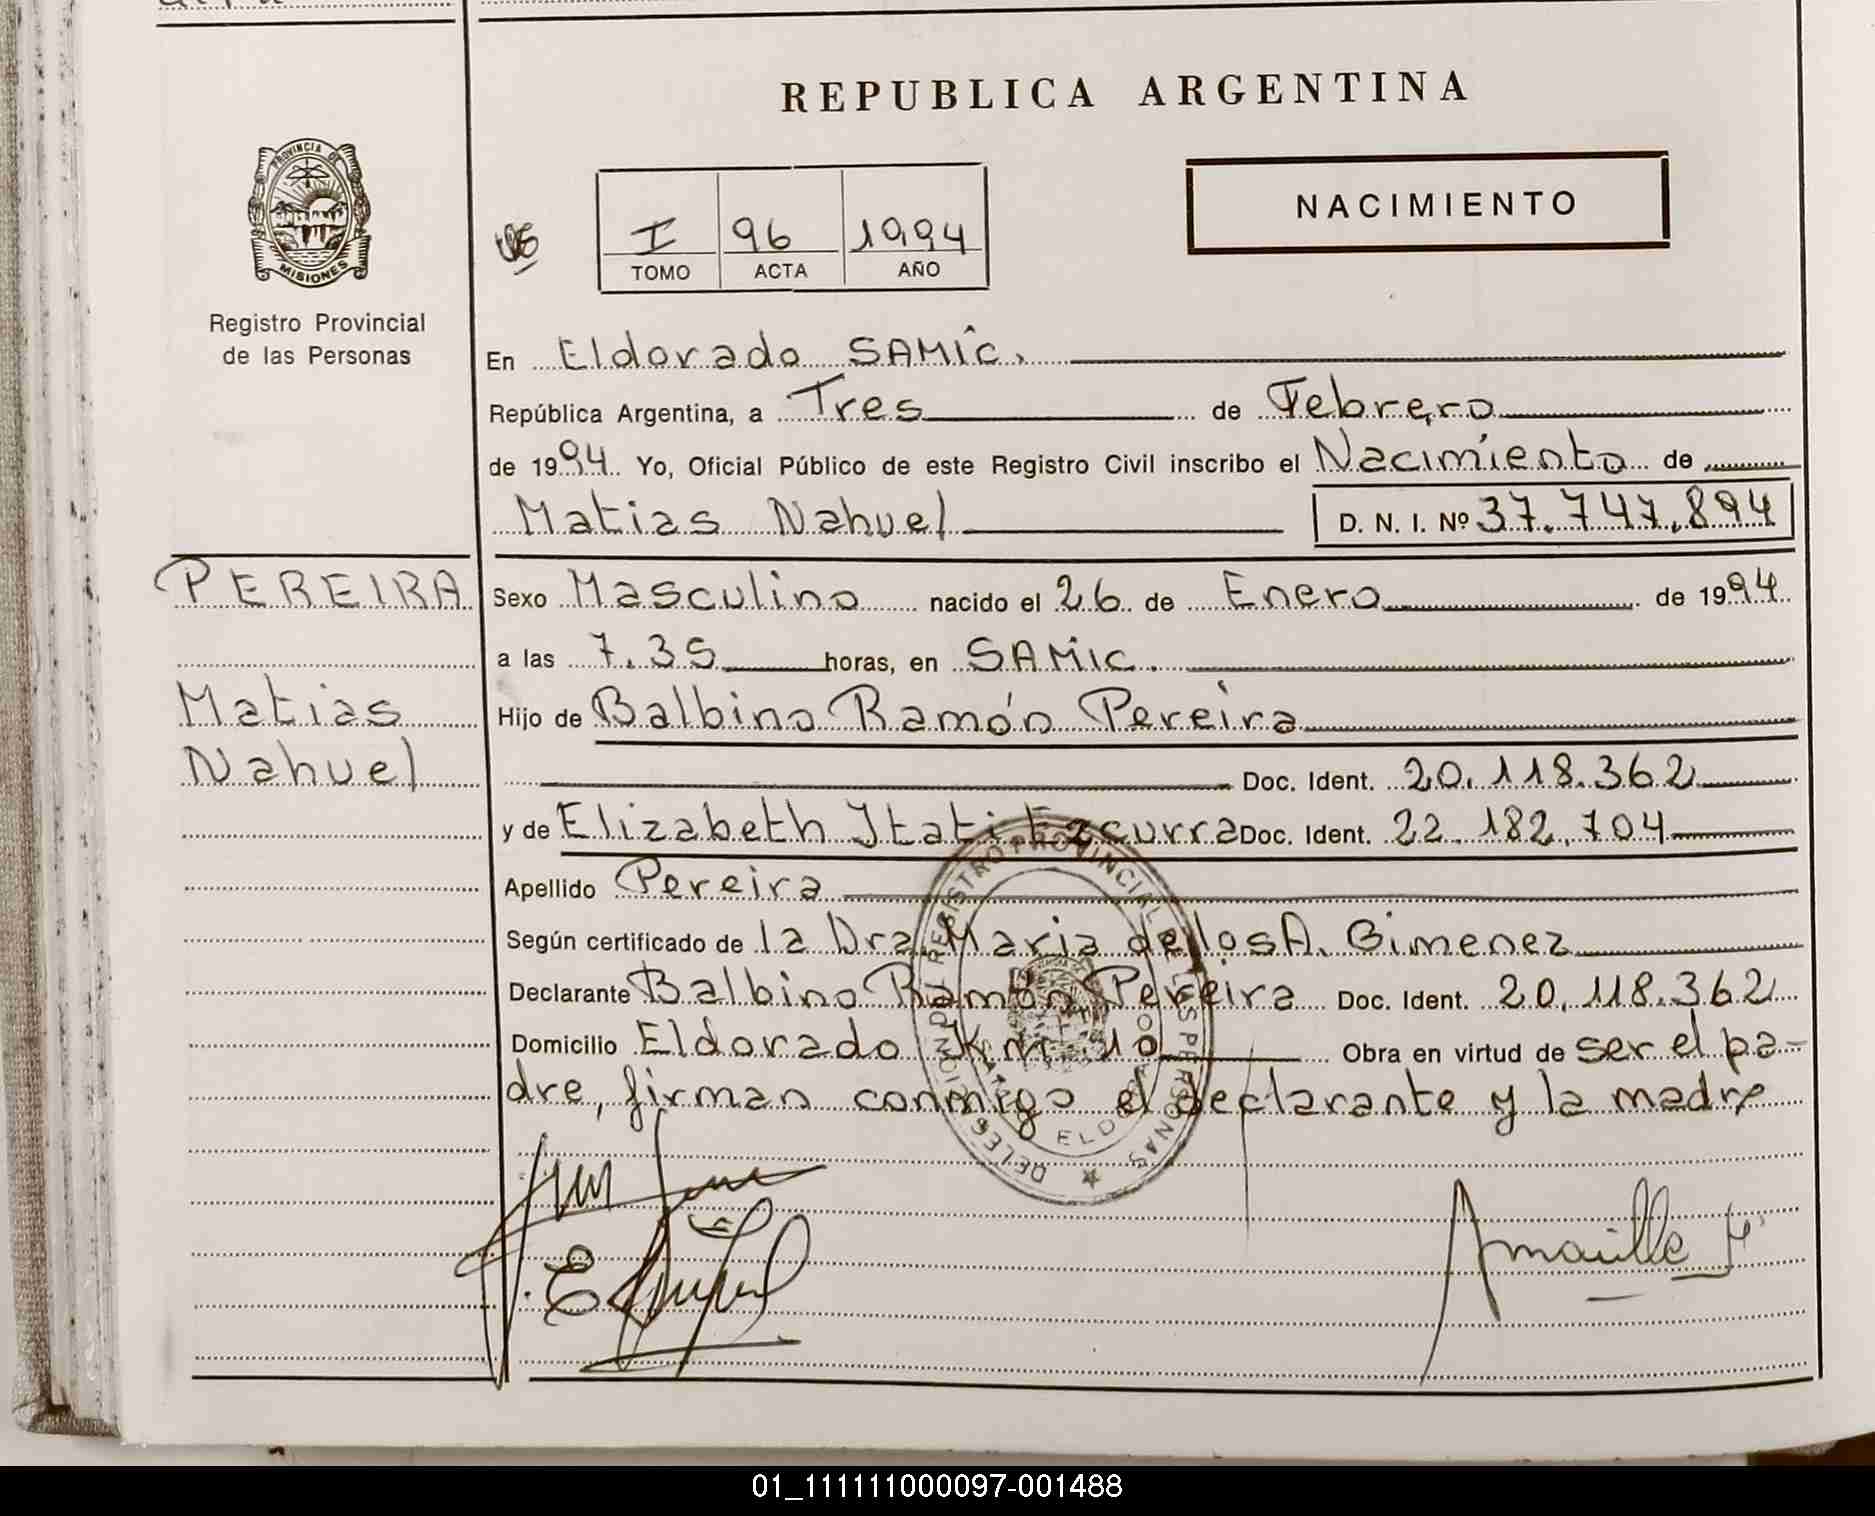 REPUBLICA ARGENTINA
PROVINCIA DE
MISIONES
Registro Provincial
de las Personas
I 96 1994
TOMO ACTA AÑO
NACIMIENTO
En Eldorado SAMIC.
República Argentina, a Tres de Febrero
de 1994 Yo, Oficial Público de este Registro Civil inscribo el Nacimiento de
Matias Nahuel D. N. I. Nº 37.747.894
PEREIRA
Matias
Nahuel
Sexo Masculino nacido el 26 de Enero de 1994
a las 7.35 horas, en SAMIC.
Hijo de Balbino Ramón Pereira
Doc. Ident. 20.118.362
y de Elizabeth Itati Ezcurra Doc. Ident. 22.182.704
Apellido Pereira
Según certificado de la Dra. Maria de los A. Gimenez
Declarante Balbino Ramón Pereira Doc. Ident. 20.118.362
Domicilio Eldorado Km. 10 Obra en virtud de ser el pa-
dre, firman conmigo el declarante y la madre
REGISTRO PROVINCIAL DE LAS PERSONAS
ELDORADO
01_111111000097-001488